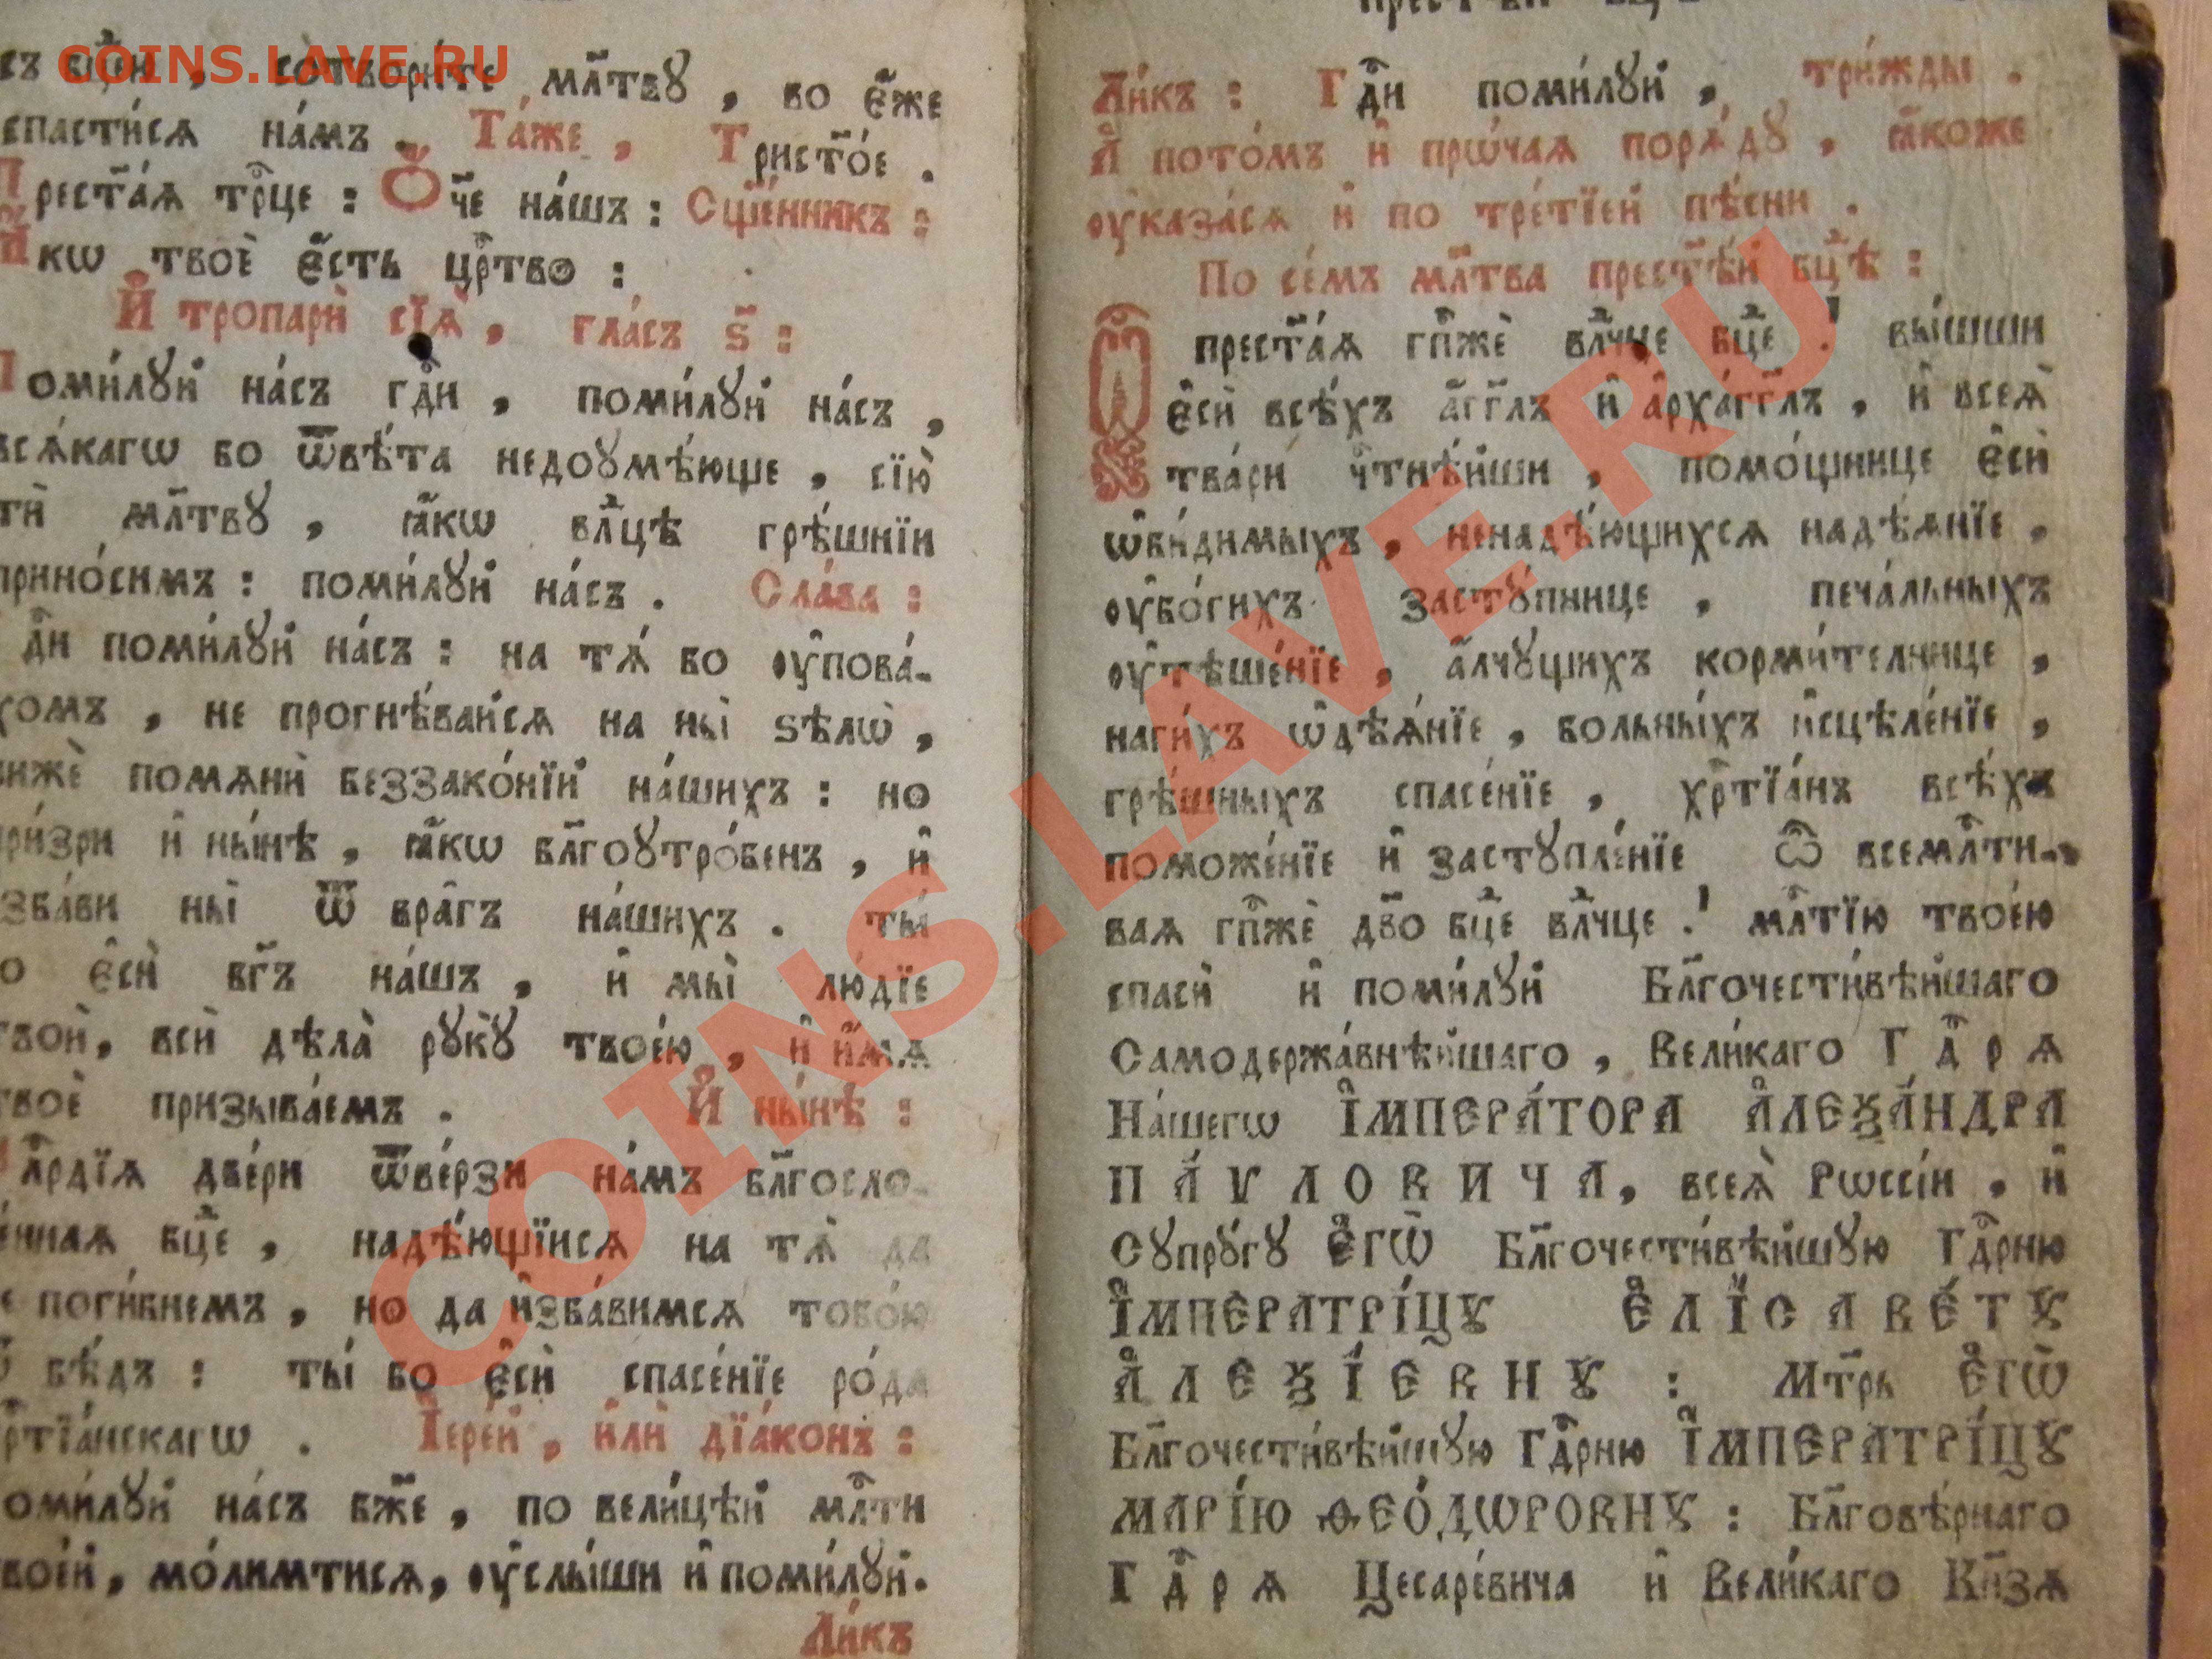 COINS.LAVE.RU
сотвори́те мл҃твꙋ , во є҆́же
спасти́сѧ на́мъ . Та́же , Трист҃о́е .
Прест҃а́ѧ трⷪ҇це : Ѻ҆́ч҃е на́шъ : Сщ҃е́нникъ :
Ꙗ҆́кѡ твоѐ є҆́сть црⷭ҇тво :
И҆ тропарѝ сїѧ̀ , гла́съ ѕ҃ :
Поми́лꙋй на́съ гдⷭ҇и , поми́лꙋй на́съ ,
всѧ́кагѡ бо ѿвѣ́та недоꙋмѣ́юще , сїю̀
ти̂ мл҃твꙋ , ꙗ҆́кѡ влⷣцѣ грѣ́шнїи
прино́симъ : поми́лꙋй на́съ . Сла́ва :
гдⷭ҇и поми́лꙋй на́съ : на тѧ́ бо ᲂу҆пова́-
хомъ , не прогнѣ́вайсѧ на ны̀ ѕѣлѡ̀ ,
нижѐ помѧнѝ беззако́нїй на́шихъ : но
при́зри и҆ ны́нѣ , ꙗ҆́кѡ бл҃гоꙋтро́бенъ , и҆
зба́ви ны̀ ѿ вра̑гъ на́шихъ . ты́
бо є҆сѝ бг҃ъ на́шъ , и҆ мы̀ лю́дїе
твоѝ, всѝ дѣла̀ рꙋ́кꙋ̀ твоє́ю , и҆ и҆́мѧ
твоѐ призыва́емъ . И҆ ны́нѣ :
две́ри ѿве́рзи на́мъ бл҃госло-
е́ннаѧ бцⷣе , надѣ́ющїисѧ на тѧ̀ да
не поги́бнемъ , но да и҆зба́вимсѧ тобо́ю
бѣ́дъ : ты́ бо є҆сѝ спасе́нїе ро́да
хрⷭ҇тїа́нскагѡ . І҆ере́й , и҆лѝ дїа́конъ :
поми́лꙋй на́съ бж҃е , по вели́цѣй млⷭ҇ти
твое́й, мо́лимтисѧ, ᲂу҆слы́ши и҆ поми́лꙋй.
Ли́къ
Ли́къ : Гдⷭ҇и поми́лꙋй , три́жды .
А҆ пото́мъ и҆ прѡ́чаѧ порѧ́дꙋ , ꙗ҆́коже
ᲂу҆каза́сѧ и҆ по тре́тїей пѣ́сни .
По се́мъ мл҃тва прест҃ѣ́й бцⷣѣ :
прест҃а́ѧ гпⷭ҇жѐ влⷣчце бцⷣе ! вы́шши
є҆сѝ всѣ́хъ а҆́гг҃лъ и҆ а҆рха́гг҃лъ , и҆ всеѧ̀
тва́ри чⷭ҇тнѣ́йши , помо́щнице є҆сѝ
ѡ҆би́димыхъ , ненадѣ́ющихсѧ надѣ́ѧнїе ,
ᲂу҆бо́гихъ застꙋ́пнице , печа́льныхъ
ᲂу҆тѣше́нїе , а҆́лчꙋщихъ корми́телнице ,
наги́хъ ѡ҆дѣѧ́нїе , больны́хъ и҆сцѣле́нїе ,
грѣ́шныхъ спасе́нїе , хрⷭ҇тїа́нъ всѣ́хъ
поможе́нїе и҆ застꙋпле́нїе Ѽ всемлⷭ҇ти-
ваѧ гпⷭ҇жѐ дв҃о бцⷣе влⷣчце ! млⷭ҇тїю твое́ю
спасѝ и҆ поми́лꙋй Бл҃гочести́вѣйшаго
Самодержа́внѣйшаго , Вели́каго Гдⷭ҇рѧ
На́шегѡ І҆МПЕРА́ТОРА А҆ЛЕѮА́НДРА
ПА́ѴЛОВИЧА, всеѧ̀ Рѡссі́и , и҆
Сꙋпрꙋ́гꙋ Є҆гѡ̀ Бл҃гочести́вѣйшꙋю Гдⷭ҇рню
І҆МПЕРАТРІ́ЦꙊ Є҆ЛІСАВЕ́ТꙊ
А҆ЛЕѮІ́ЕВНꙊ : Мт҃рь Є҆гѡ̀
Бл҃гочести́вѣйшꙋю Гдⷭ҇рню І҆МПЕРАТРІ́ЦꙊ
МАРІ́Ю ѲЕО́ДѠРОВНꙊ : Бл҃говѣ́рнаго
Гдⷭ҇рѧ Цесаре́вича и҆ Вели́каго Кн҃зѧ
COINS.LAVE.RU